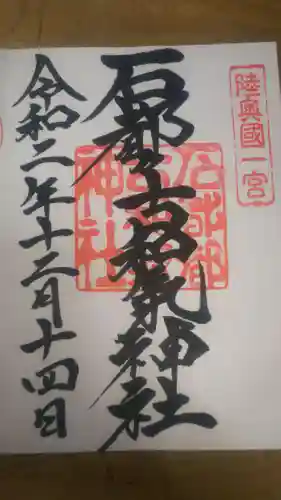 陸奥國一宮
石都々古和気神社
石都都
古和気
神社
令和二年十二月十四日